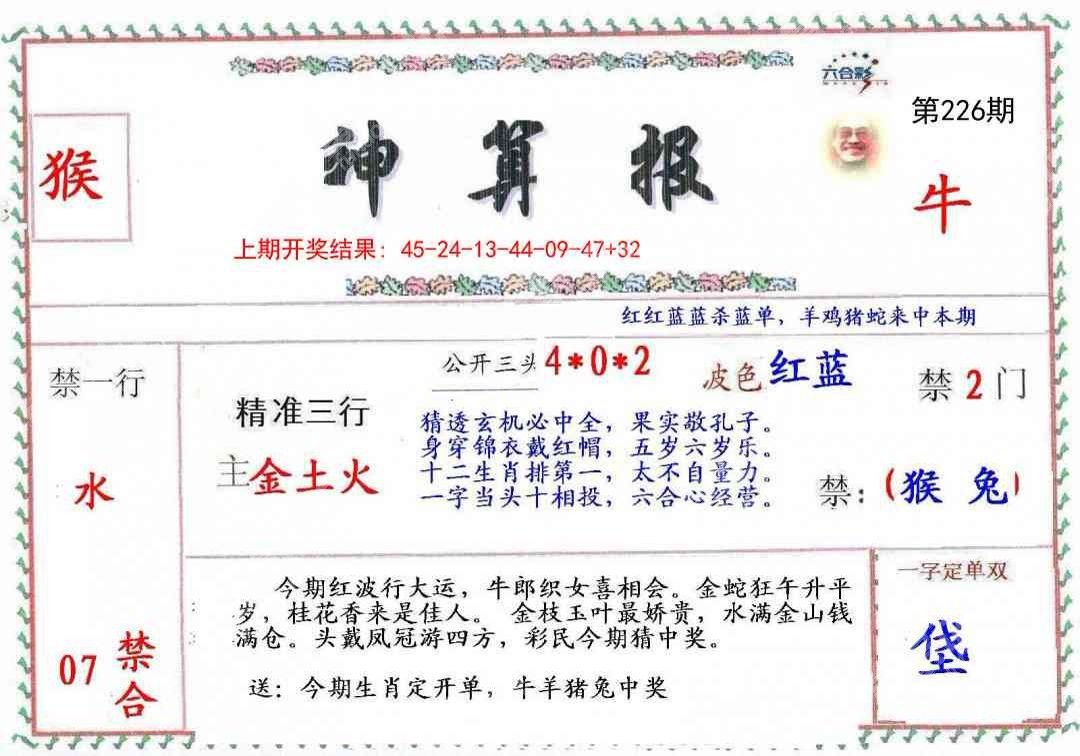 六合彩
第226期
猴
神算报
牛
上期开奖结果：45-24-13-44-09-47+32
红红蓝蓝杀蓝单，羊鸡猪蛇来中本期
禁一行
水
07 禁合
公开三头 4*0*2
波色 红蓝
禁 2 门
精准三行
主金土火
猜透玄机必中全，果实敬孔子。
身穿锦衣戴红帽，五岁六岁乐。
十二生肖排第一，太不自量力。
一字当头十相投，六合心经营。
禁：(猴 兔)
今期红波行大运，牛郎织女喜相会。金蛇狂午升平
岁，桂花香来是佳人。 金枝玉叶最娇贵，水满金山钱
满仓。头戴凤冠游四方，彩民今期猜中奖。
送：今期生肖定开单，牛羊猪兔中奖
一字定单双
垡